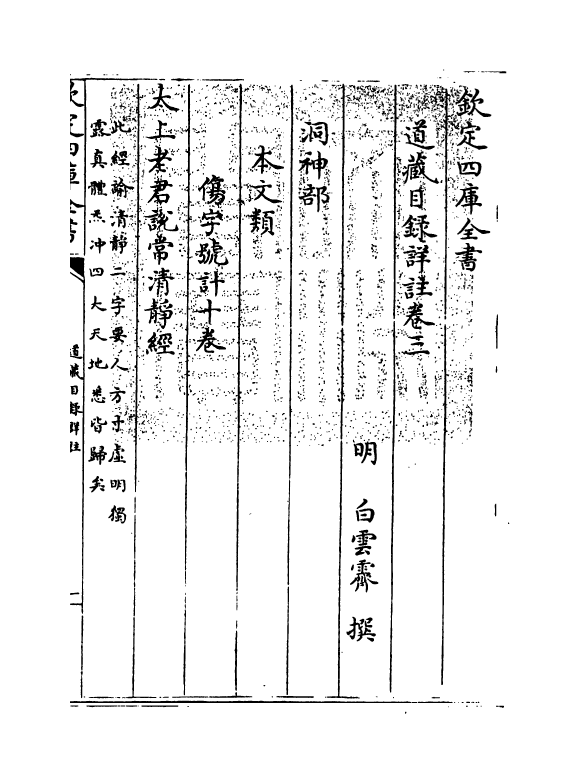 欽定四庫全書
道藏目録詳註卷三
明 白雲霽 撰
洞神部
本文類
傷字號計十卷
太上老君說常清靜經
此經諭清靜二字要人方寸虛明獨
露真體𠀌冲四大天地悉皆歸矣
欽定四庫全書
道藏目録詳註
一